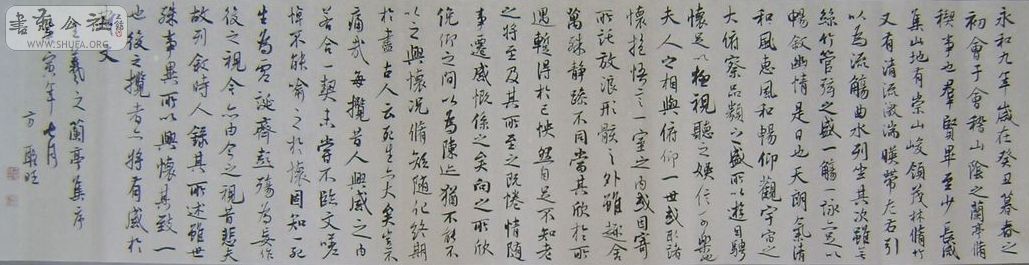 永和九年歲在癸丑暮春之
初會于會稽山陰之蘭亭脩
禊事也羣賢畢至少長咸
集此地有崇山峻領茂林脩竹
又有清流激湍暎帶左右引
以為流觴曲水列坐其次雖無
絲竹管弦之盛一觴一詠亦足以
暢敘幽情是日也天朗氣清
和風惠風和暢仰觀宇宙之
大俯察品類之盛所以遊目騁
懷足以極視聽之娛信可樂也
夫人之相與俯仰一世或取諸
懷抱悟言一室之內或因寄
所託放浪形骸之外雖趣舍
萬殊靜躁不同當其欣於所
遇暫得於己怏然自足不知老
之將至及其所之既惓情隨
事遷感慨係之矣向之所欣
俛仰之間以為陳迹猶不能不
以之興懷況脩短隨化終期
於盡古人云死生亦大矣豈不
痛哉每攬昔人興感之由
若合一契未嘗不臨文嗟
悼不能喻之於懷固知一死
生為虛誕齊彭殤為妄作
後之視今亦由今之視昔悲夫
故列敘時人錄其所述雖世
殊事異所以興懷其致一
也後之攬者亦將有感於
斯文
羲之蘭亭集序
寅年七月
方
書法欣賞
WWW.SHUFA.ORG